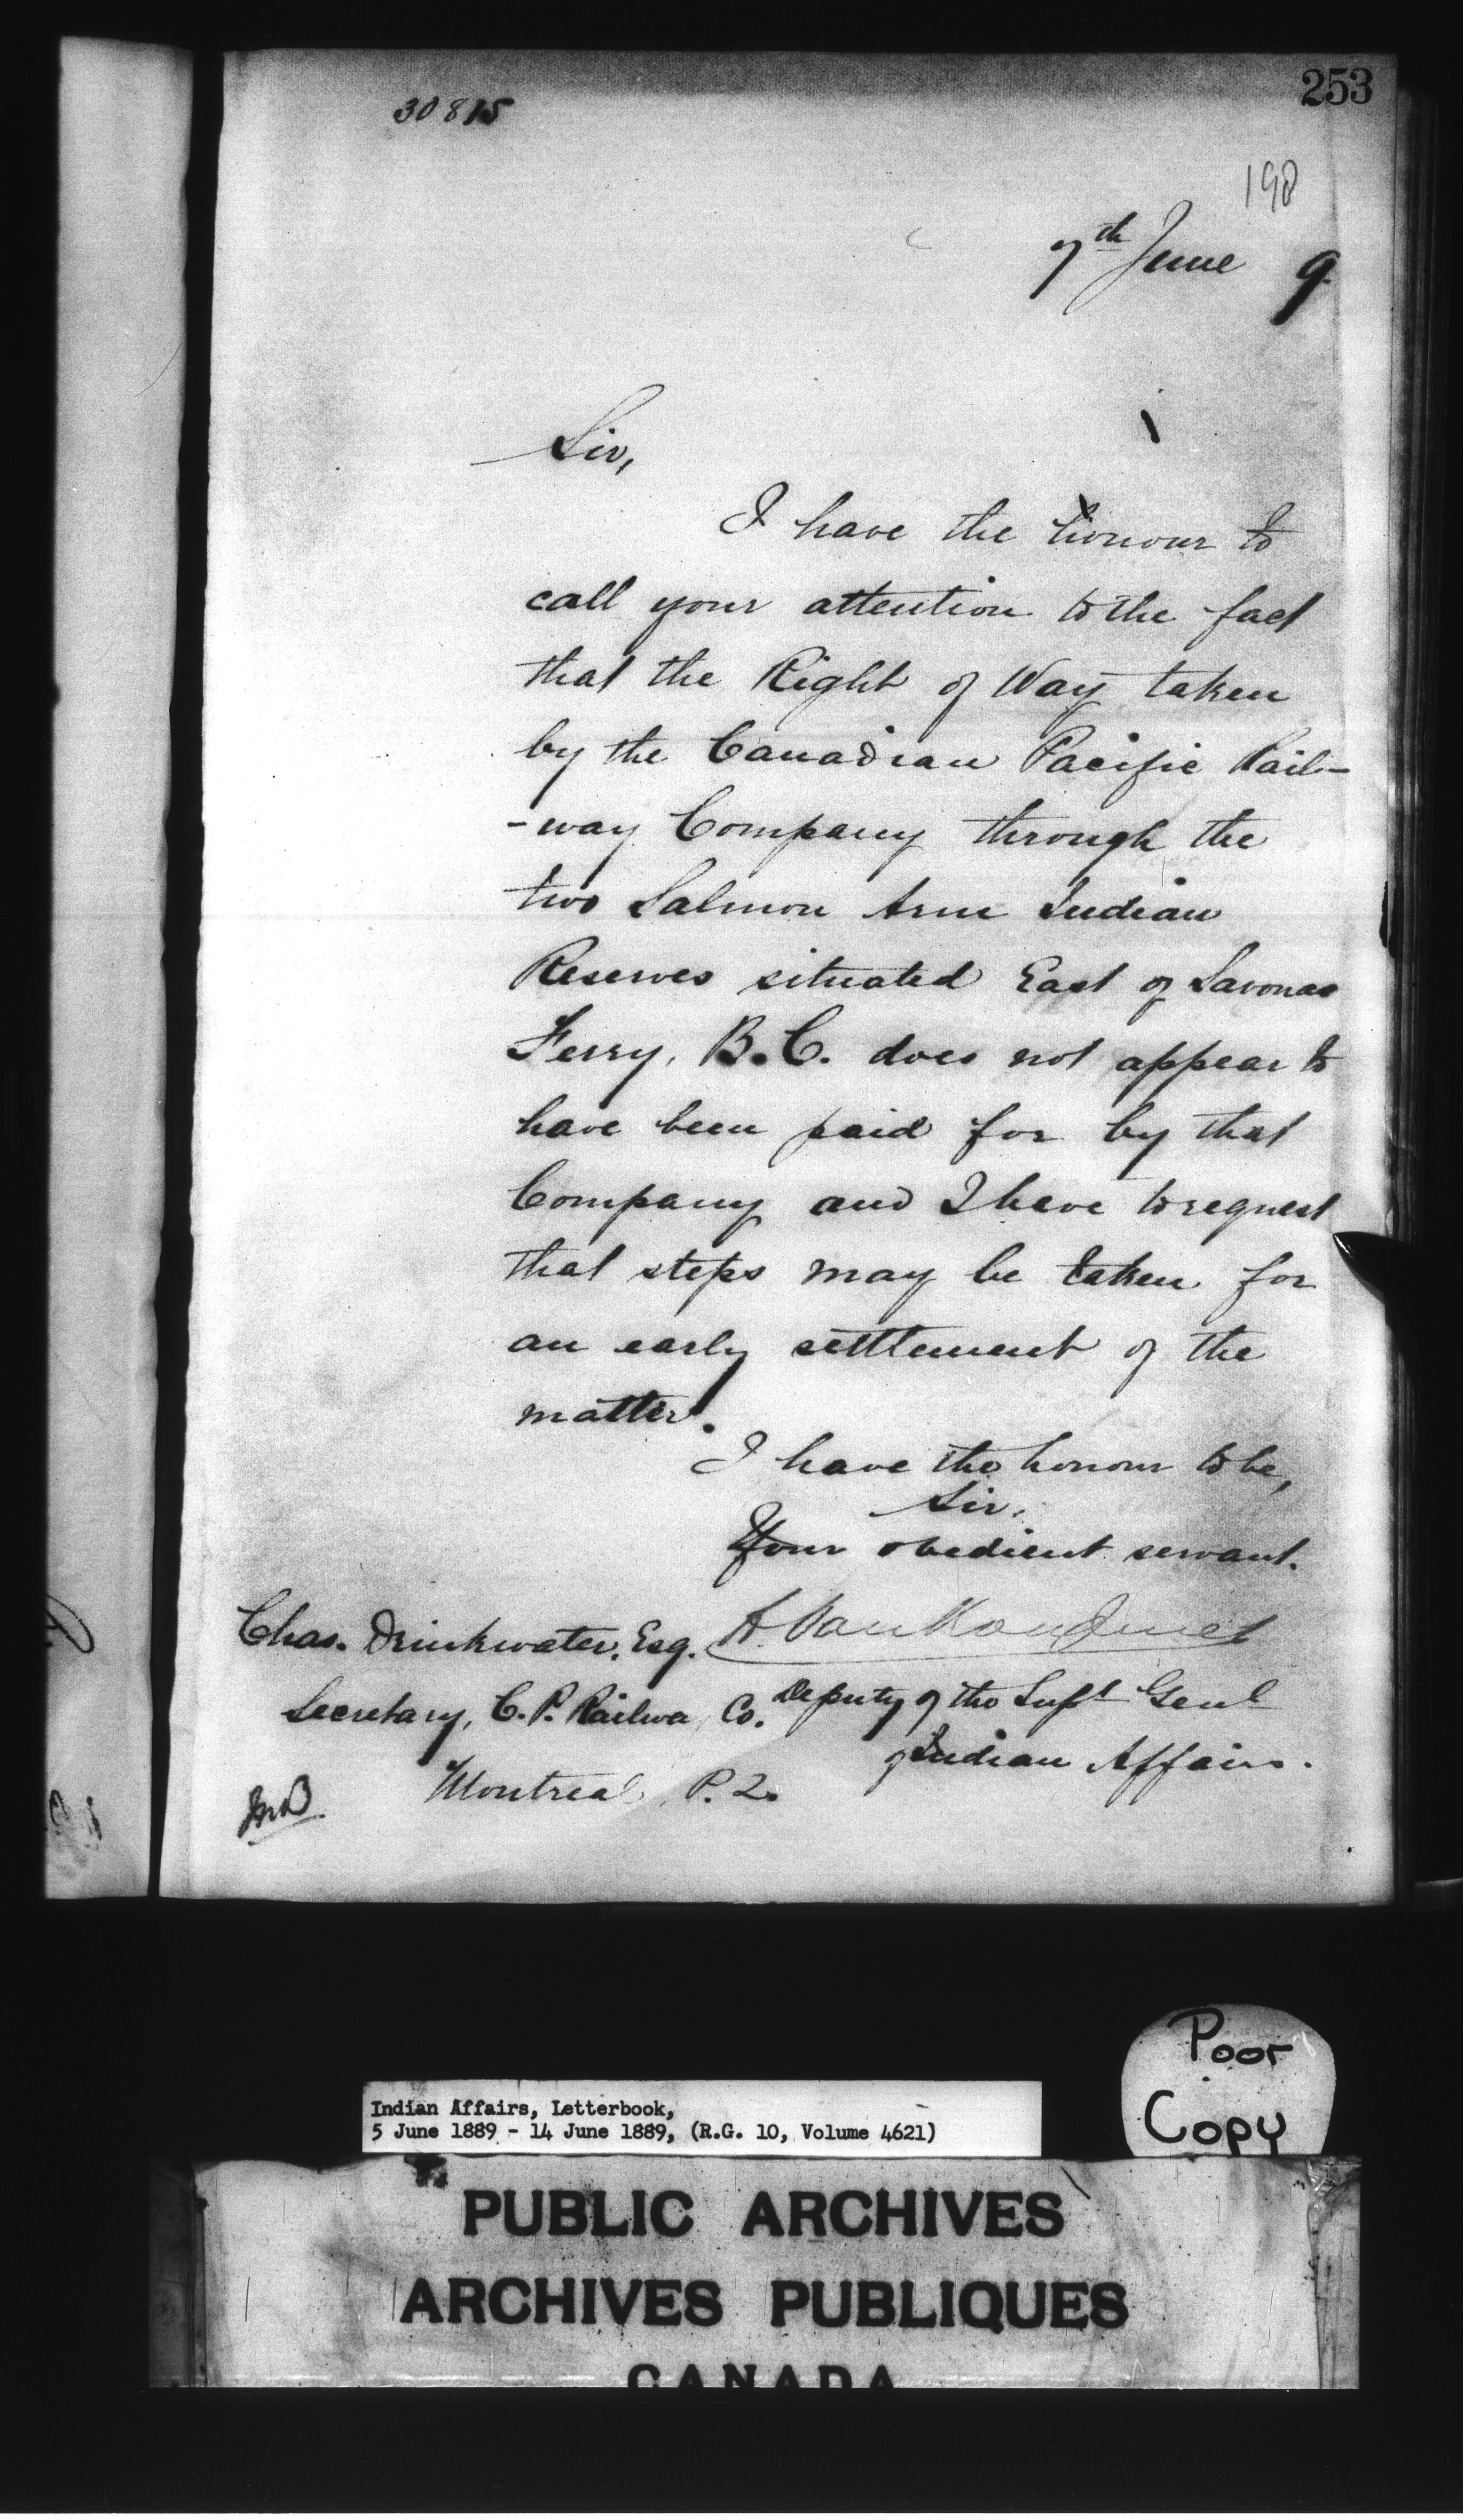 253
30815
198
7th June 9.
Sir,
I have the honour to
call your attention to the fact
that the Right of Way taken
by the Canadian Pacific Rail-
-way Company through the
two Salmon Arm Indian
Reserves situated East of Savonas
Ferry, B.C. does not appear to
have been paid for by that
Company and I have to request
that steps may be taken for
an early settlement of the
matter.
I have the honour to be,
Sir,
Your obedient servant.
L. VanKoughnet
Deputy of the Supt Genl
of Indian Affairs.
Chas. Drinkwater, Esq.
Secretary, C.P. Railwa Co.
Montreal, P.Q.
Poor
Copy
Indian Affairs, Letterbook,
5 June 1889 - 14 June 1889, (R.G. 10, Volume 4621)
PUBLIC ARCHIVES
ARCHIVES PUBLIQUES
CANADA